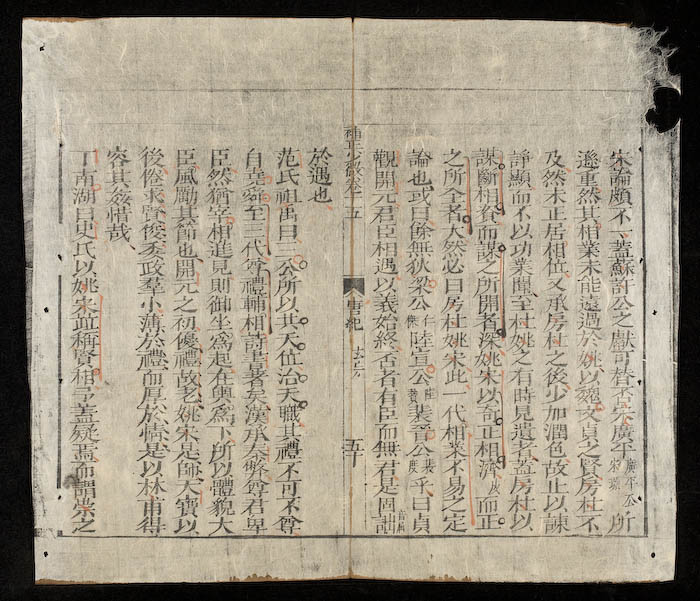 宋論頗不一蓋蘇許公之獻可替否宋廣平廣平公宋璟所
遜重然其相業未能遠過於姚以魏文貞之賢房杜不
及然未正居相位又承房杜之後少加潤色故止以諫
諍顯而不以功業顯至杜姚之有時見遺者蓋房杜以
謀斷相資而謀之所開者深姚宋以奇正相濟故而正
之所全者大然必曰房杜姚宋此一代相業不易之定
論也或曰餘無狄梁公仁傑陸宣公陸贄裴晉公裴度乎曰貞
觀開元君臣相遇以義始終否者有臣而無君是固詘
補正少微卷十五 唐紀 玄宗 五十
於遇也
范氏祖禹曰三公所以共天位治天職其禮不可不尊
自堯舜至三代尊禮輔相詩書著矣漢承秦弊尊君卑
臣然猶宰相進見則御坐為起在輿為下所以體貌大
臣風勵其節也開元之初優禮故老姚宋是師天寶以
後倦求賢俊委政羣小薄於禮而厚於情是以林甫得
容其姦惜哉
丁南湖曰史氏以姚宋並稱賢相予蓋疑焉而謂崇之